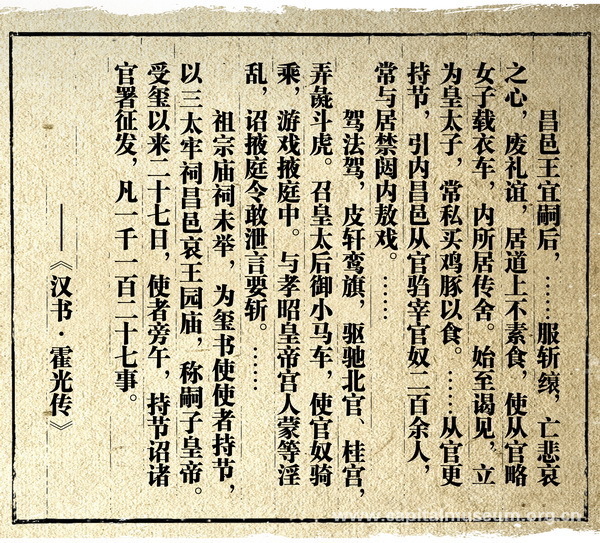 昌邑王宜嗣后，……服斩缞，亡悲哀
之心，废礼谊，居道上不素食，使从官略
女子载衣车，内所居传舍。始至谒见，立
为皇太子，常私买鸡豚以食。……从官更
持节，引内昌邑从官驺宰官奴二百余人，
常与居禁闼内敖戏。……
驾法驾，皮轩鸾旗，驱驰北宫、桂宫，
弄彘斗虎。召皇太后御小马车，使官奴骑
乘，游戏掖庭中。与孝昭皇帝宫人蒙等淫
乱，诏掖庭令敢泄言要斩。……
祖宗庙祠未举，为玺书使使者持节，
以三太牢祠昌邑哀王园庙，称嗣子皇帝。
受玺以来二十七日，使者旁午，持节诏诸
官署征发，凡一千一百二十七事。
——《汉书·霍光传》
www.capitalmuseum.org.cn